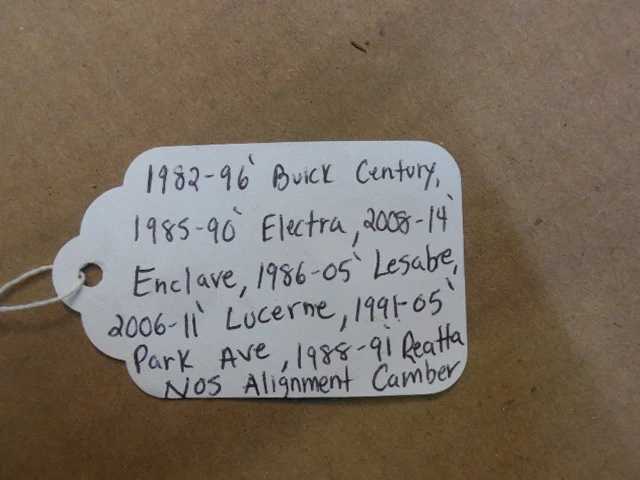 1982-96' Buick Century,
1985-90' Electra, 2008-14'
Enclave, 1986-05' Lesabre,
2006-11' Lucerne, 1991-05'
Park Ave, 1988-91' Reatta
NOS Alignment Camber